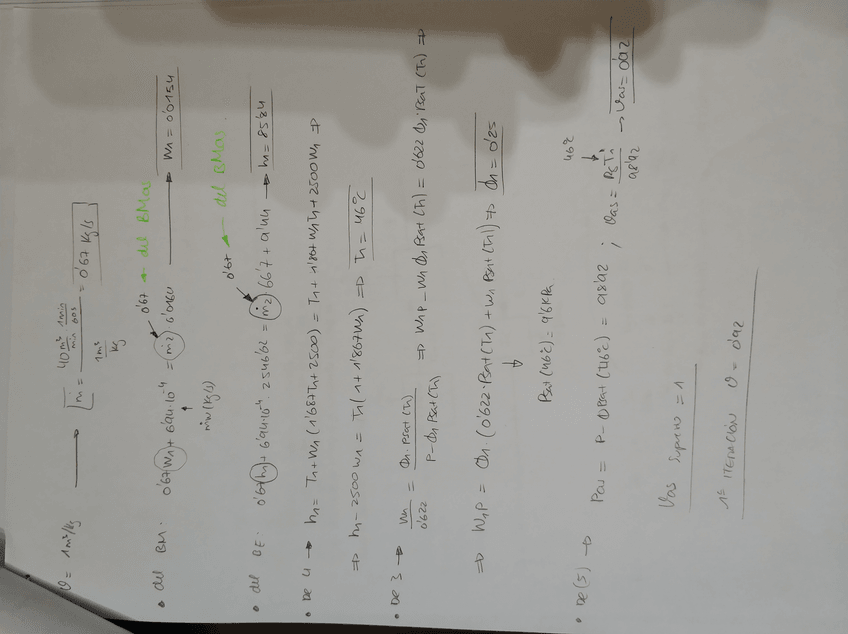 ϑ = 1 m³/kg → ṁ = (40 m³/min · 1min/60s) / (1 m³/kg) = 0'67 Kg/s
• del BM: 0'67 W₁ + 6'94·10⁻⁴ = ṁ₂ · 0'0164 → W₁ = 0'0154
ṁw (kg/s)
0'67 ← del BMas
• del BE: 0'67 h₁ + 6'94·10⁻⁴ · 2546'62 = ṁ₂ · 66'7 + 9'44 → h₁ = 85'84
0'67 ← del BMas.
• De 4 → h₁ = T₁ + W₁ (1'687T₁ + 2500) = T₁ + 1'867 W₁T₁ + 2500 W₁ ⇒
⇒ h₁ - 2500 W₁ = T₁ (1 + 1'867W₁) ⇒ T₁ = 46ºC
• De 3 → W₁/0'622 = Φ₁·Psat(T₁) / (P - Φ₁Psat(T₁)) ⇒ W₁P - W₁ Φ₁Psat(T₁) = 0'622 Φ₁·Psat(T₁) ⇒
⇒ W₁P = Φ₁ (0'622·Psat(T₁) + W₁ Psat(T₁)) ⇒ Φ₁ = 0'25
Psat(46ºC) = 9'6 KPa
• De (5) → Pas = P - ΦPsat(46ºC) = 98'92 ; ϑas = T₁ / 98'92 → ϑas = 0'92
46ºC
ϑas supuse = 1
1ª ITERACIÓN ϑ = 0'92